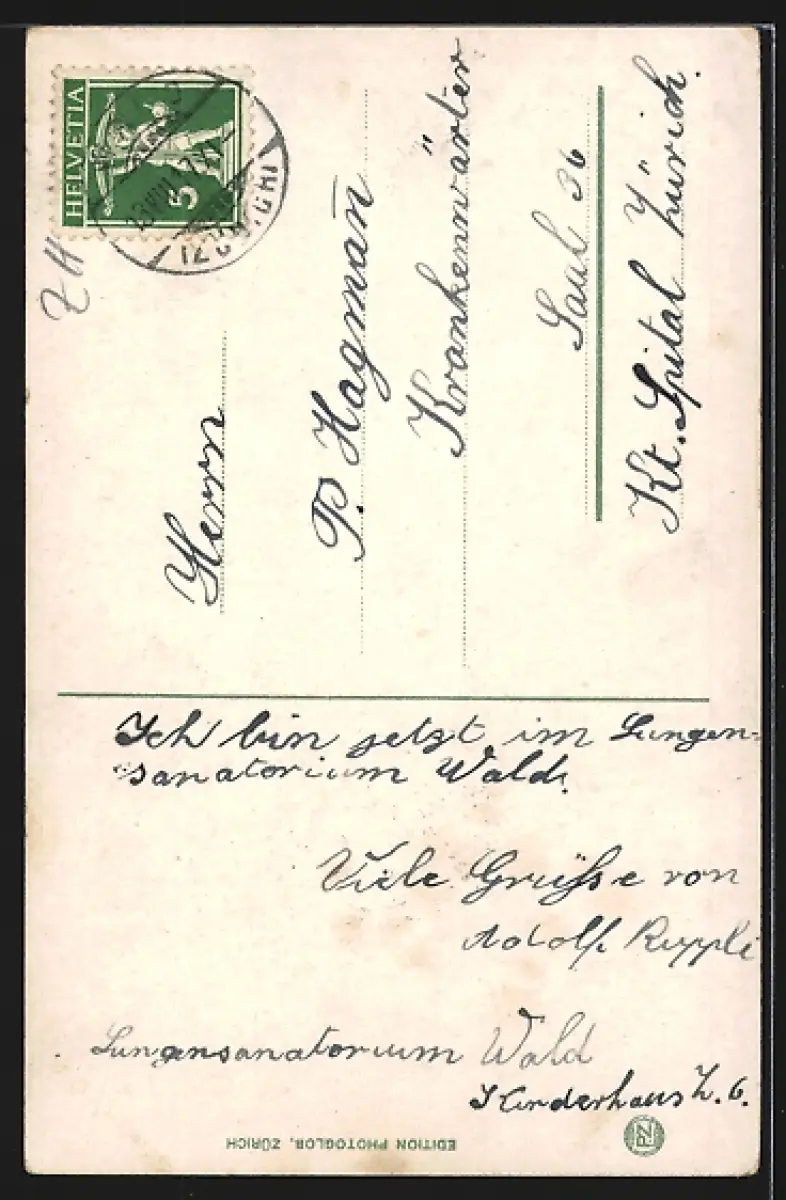 HELVETIA
5
ZH
Herrn
P. Hagmañ
Krankenwärter
Saal 36
Kt. Spital Zürich.
Ich bin jetzt im Lungen-
sanatorium Wald.
Viele Grüsse von
Adolf Ruppli
Lungensanatorium Wald
Kinderhaus Z. 6.
EDITION PHOTOGLOB, ZÜRICH
PZ